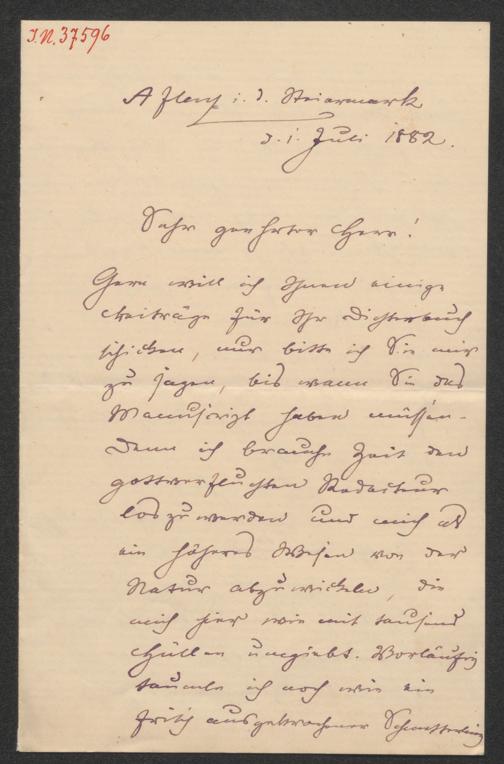 I.N. 37596
Aflenz i. d. Steiermark
d. 1. Juli 1882.
Sehr geehrter Herr!
Gern will ich Ihnen einige
Beiträge für Ihr Dichterbuch
schicken, nur bitte ich Sie mir
zu sagen, bis wann Sie das
Manuscript haben müssen.
Denn ich brauche Zeit den
gottverfluchten Redacteur
los zu werden und mich als
ein höheres Wesen von der
Natur abzuwickeln, die
mich hier wie mit tausend
Hüllen umgiebt. Vorläufig
taumle ich noch wie ein
frisch ausgekrochener Schmetterling